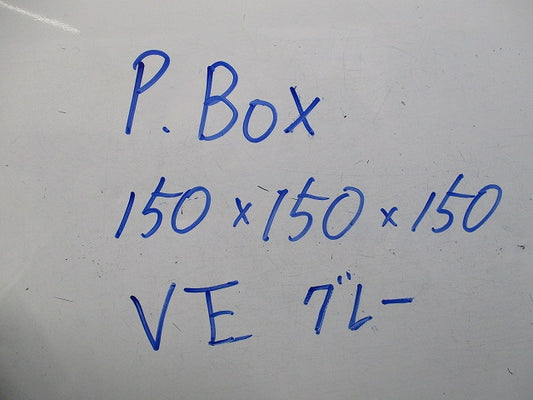 P. Box
150 × 150 × 150
VE グレー